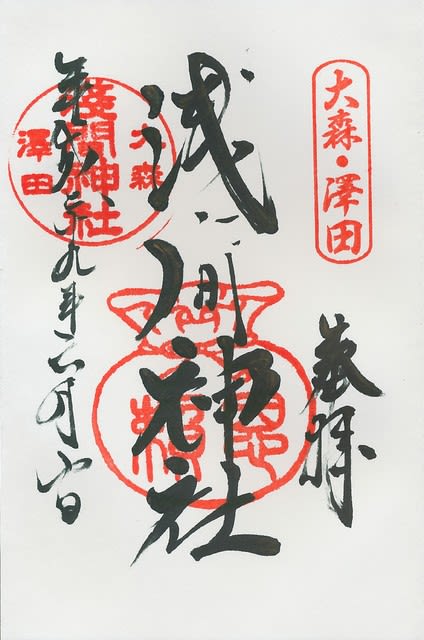 大森・澤田
敬拝
浅間神社
大森
淺間神社
澤田
平成二九年六月日